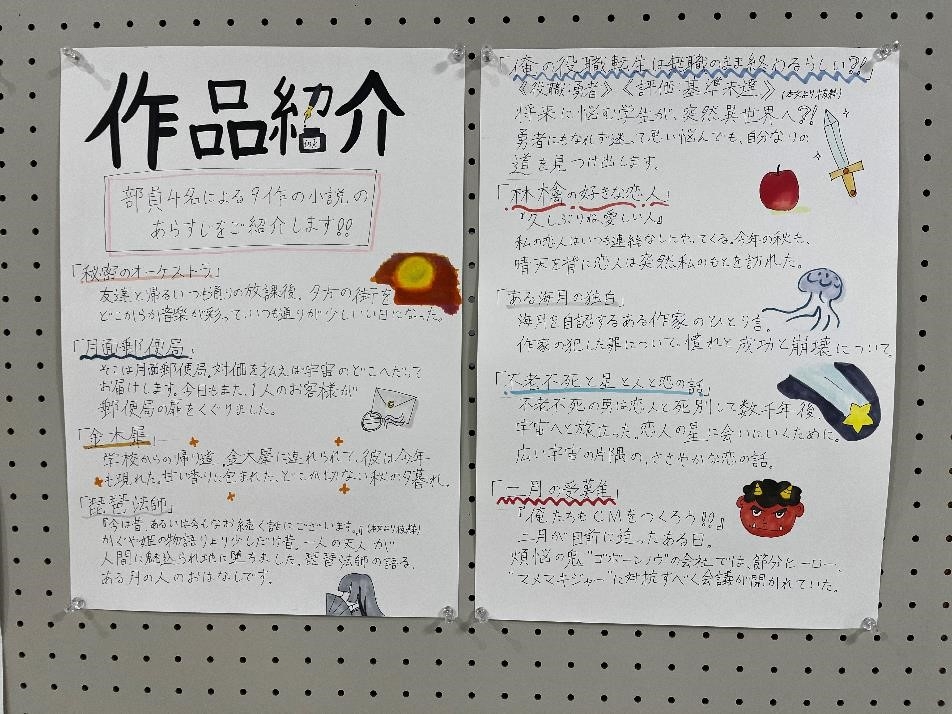 作品紹介
部員4名による9作の小説の
あらすじをご紹介します!!
「秘密のオーケストラ」
友達と帰るいつも通りの放課後。夕方の街を
どこからか音楽が彩って、いつも通りが少しいい日になった。
「月面郵便局」
そこは月面郵便局。対価を払えば宇宙のどこへだって
お届けします。今日もまた、1人のお客様が
郵便局の扉をくぐりました。
「金木犀」
学校からの帰り道、金木犀に連れられて、彼は今年
も現れた。甘い香りに包まれた、どこか切ない秋の夕暮れ。
「琵琶法師」
『今は昔、あるいは今もなお続く話にございます。』(本文より抜粋)
かぐや姫の物語より少しだけ昔。一人の天人が
人間に魅せられ地に堕ちました。琵琶法師の語る、
ある月の人のおはなしです。
「俺の役職転生は転職のまま終わるらしい?!」
《役職:勇者》《評価:基準未達》(本文より抜粋)
将来に悩む学生が、突然異世界へ?!
勇者にもなれず迷って思い悩んでも、自分なりの
道を見つけ出します。
「林檎の好きな恋人」
『久しぶりね、愛しい人』
私の恋人はいつも連絡なしにやってくる。今年の秋も、
晴天を背に恋人は突然私のもとを訪れた。
「ある海月の独白」
海月を自認するある作家のひとり言。
作家の犯した罪について、憧れと成功と崩壊について。
「不老不死と星と人と恋の話」
不老不死の男は恋人と死別して数千年後
宇宙へと旅立った。恋人の星に会いにいくために。
広い宇宙の片隅の、ささやかな恋の話。
「二月の受難鬼」
『俺たちもCMをつくろう!!』
二月が目前に迫ったある日。
煩悩の鬼"ゴブーンノウ"の会社では、節分ヒーロー、
"マメマキジャー"に対抗すべく会議が開かれていた。